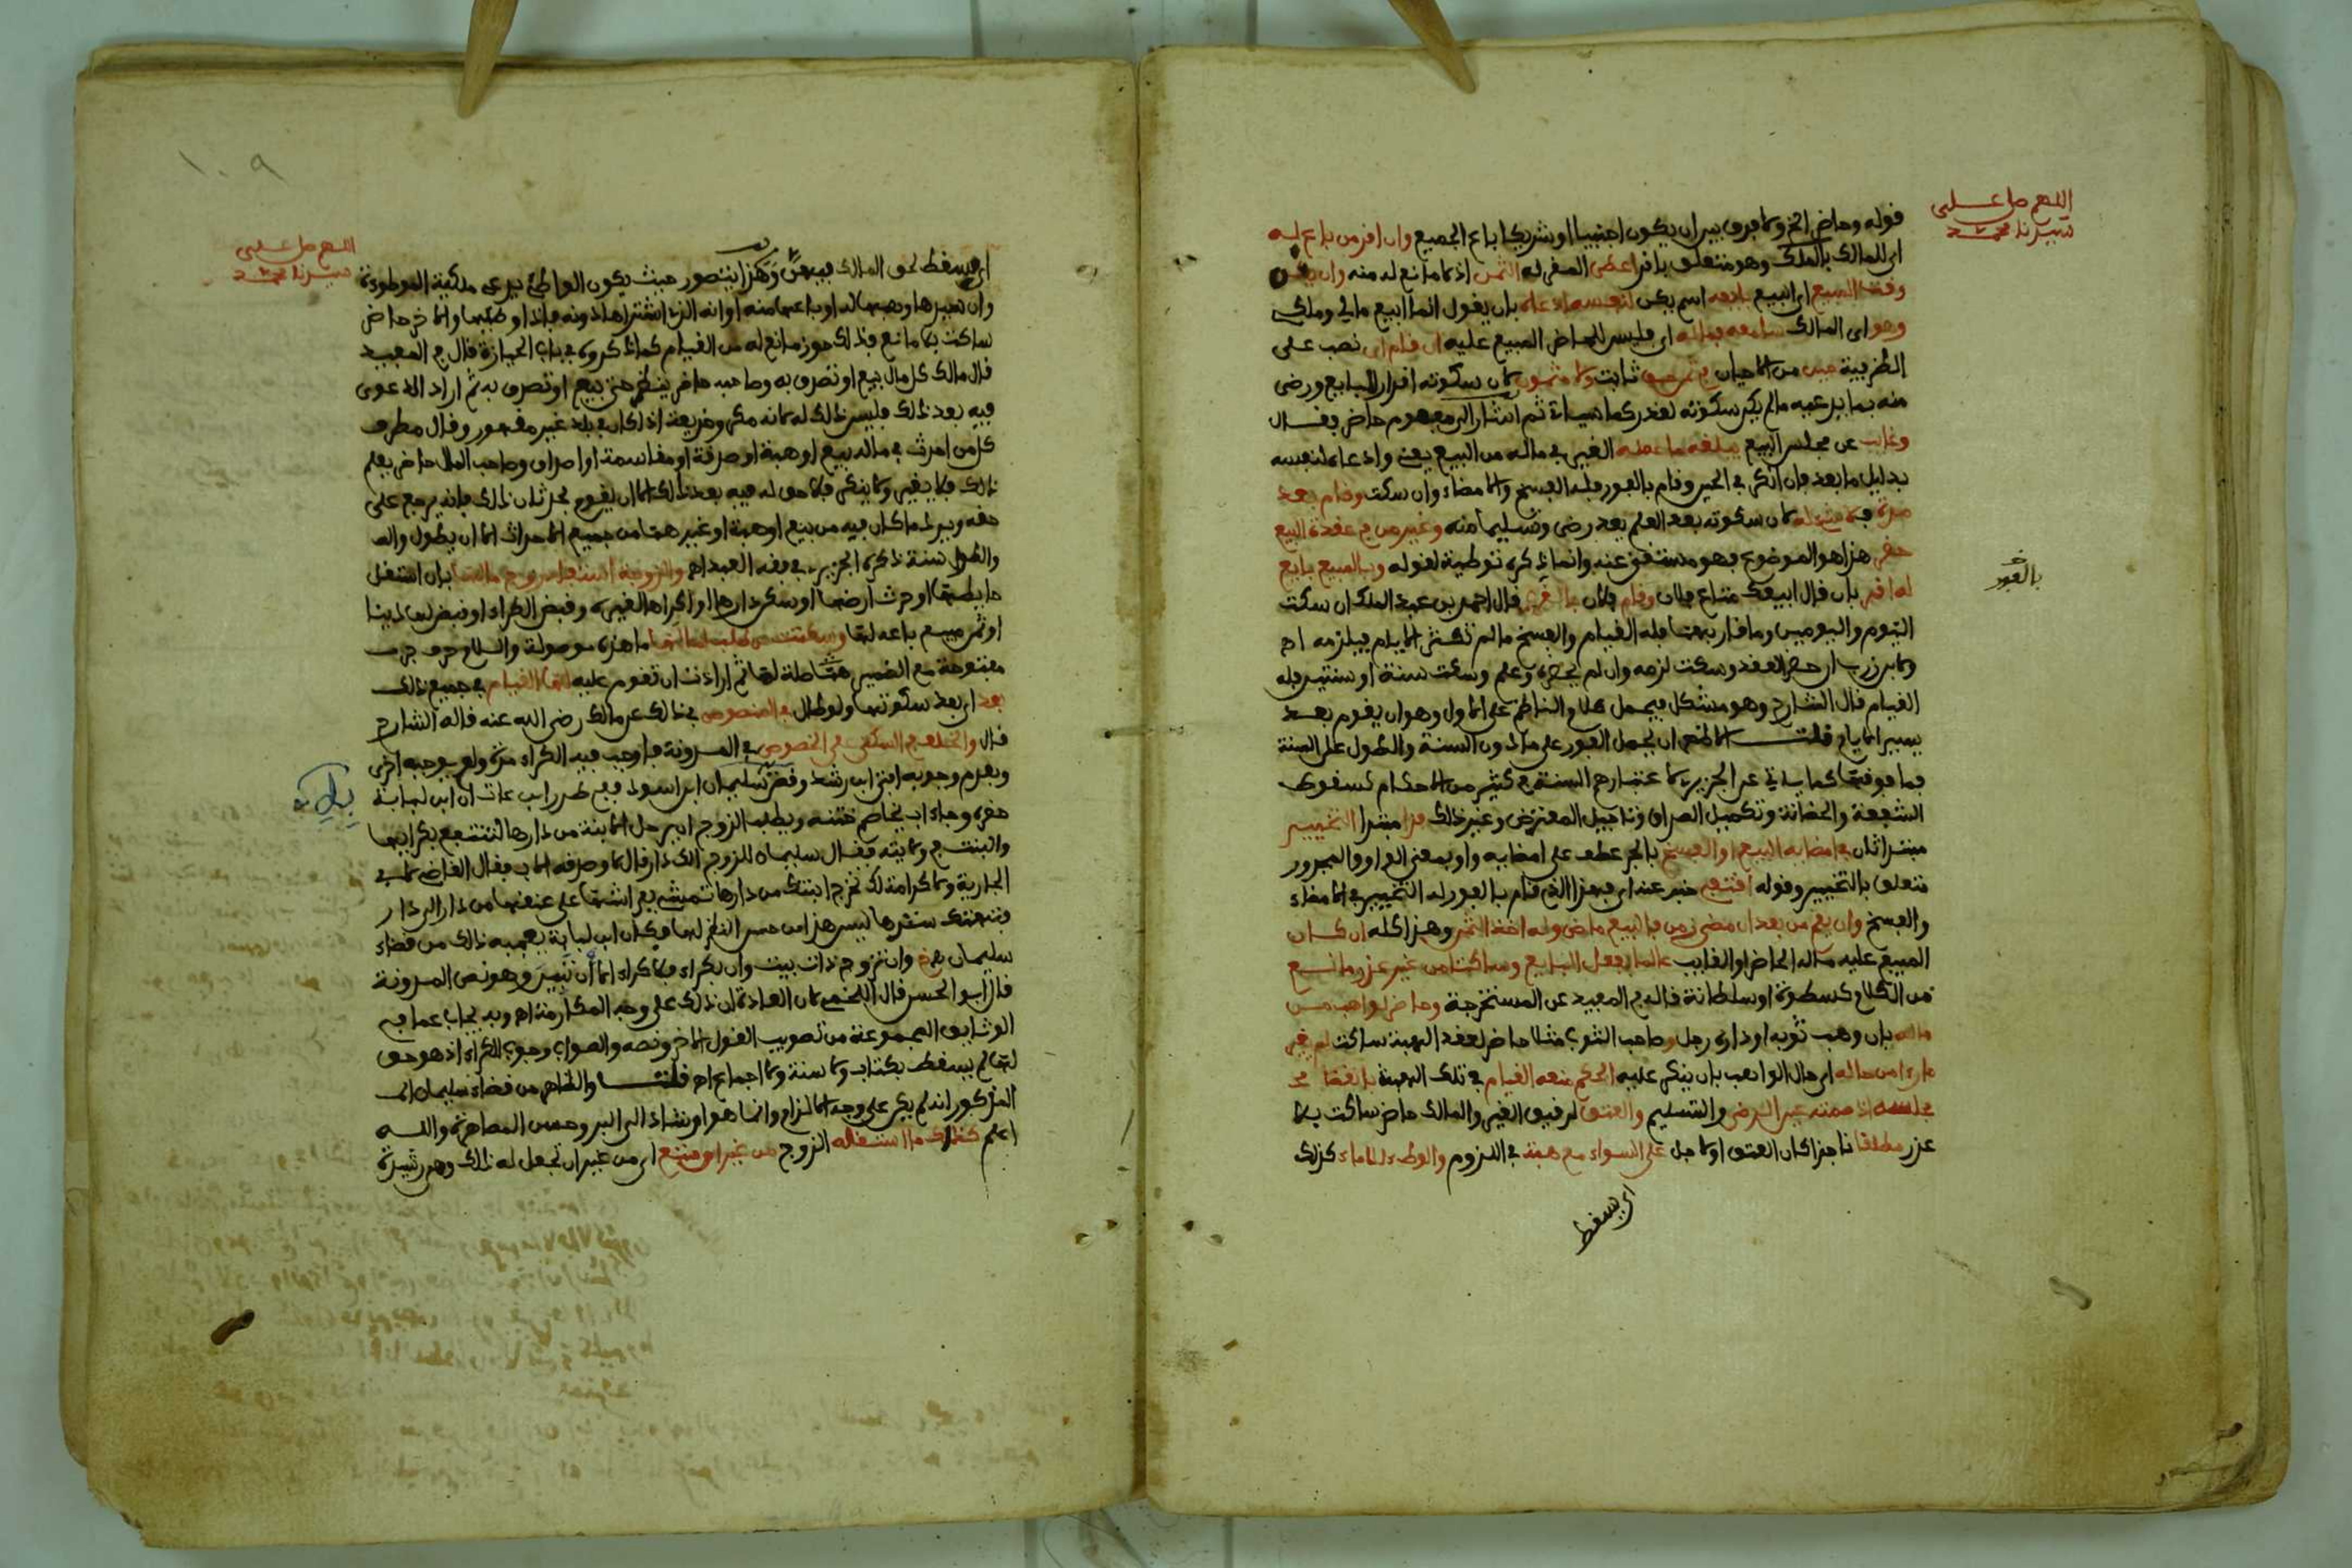 اللهم صل على
سيدنا محمد
قوله وحاضر الخ ولا فرق بين ان يكون اجنبيا او شريكا باع الجميع وان اقر من باع له
اي للمالك بالملك وهو متعلق باقر اعطى المقر له الثمن اذ لا مانع له منه وان يكن
وقت المبيع اي البيع بايعه اسم يكن لنفسه ادعاه بان يقول انما ابيع مالي وملكي
وهو اي المالك سامعه فما له اي فليس للحاضر المبيع عليه ان قام اي نصب على
الظرفية حين من الاحيان في ثمن حق ثابت ولا مثمون لان سكوته اقرار للبايع ورضى
منه بما يدعيه ما لم يكن سكوته لعذر كما سياتي ثم اشار الى مفهوم حاضر فقال
وغائب عن مجلس البيع يبلغه ما عمله الغير في ماله من البيع يعني وادعاه لنفسه
بدليل ما بعد فان انكر في الحين وقام بالفور فله الفسخ والامضاء وان سكت وقام بعد
مدة فلا شيء له لان سكوته بعد العلم يعد رضى وتسليما منه وغير من في عقدة البيع
حضر هذا هو الموضوع فهو مستغنى عنه وانما ذكره توطية لقوله وبالمبيع بايع
له اقر بان قال ابيعك متاع فلان وقام فلان بالفور قال احمد بن عبد الملك ان سكت
اليوم واليومين وما قاربهما فله القيام والفسخ ما لم تكثر الايام فيلزمه اه
ولابن زرب ان حضر العقد وسكت لزمه وان لم يحضره وعلم وسكت سنة او سنتين فله
القيام قال الشارح وهو مشكل فيحمل كلام الناظم على الاول وهو ان يقوم بعد
يسير الايام قلت الاظهر ان يحمل الفور على ما دون السنة والطول على السنة
فما فوقها كما ياتي عن الجزيري لا عتبارهم السنة في كثير من الاحكام كسقوط
الشفعة والحضانة وتكميل الصداق وتاجيل المعترض وغير ذلك فذا مبتدا التخيير
مبتدا ثان في امضائه البيع او الفسخ بالجر عطف على امضائه واو بمعنى الواو والمجرور
متعلق بالتخيير وقوله اقتفي خبر عنه اي فهذا الذي قام بالفور له التخيير في الامضاء
والفسخ وان يقم من بعد ان مضى زمن فالبيع ماض وله اخذ الثمن وهذا كله ان كان
المبيع عليه ماله الحاضر او الغايب عالما بفعل البايع وساكتا من غير عذر مانع
من الكلام كسطوة او سلطانة قاله في المفيد عن المستخرجة وحاضر لواهب من
ماله بان وهب ثوبه او داره رجل وصاحب الثوب مثلا حاضر لعقد الهبة ساكت لم يغير
ما راى من حاله اي حال الواهب بان ينكر عليه الحكم منعه القيام في تلك الهبة بانقضا
مجلسه اذ صمته عين الرضى والتسليم والعتق لرقيق الغير والمالك حاضر ساكت بلا
عذر مطلقا ناجزا كان العتق او لاجل على السواء مع هبة في اللزوم والوطء للاماء كذلك
بالفور
اي يسقط
١٠٩
اللهم صل على
سيدنا محمد
اي يسقط حق المالك فيهن وهذا يتصور حيث يكون الواطئ يدعي ملكية الموطوءة
وان سيدها وهبها له او باعها منه او انه الذي اشتراها دونه فاذا وطئها والاخر حاضر
ساكت بلا مانع فذلك حوز مانع له من القيام كما ذكروه في باب الحيازة قال في المفيد
قال مالك كل مال بيع او تصرف به وصاحبه حاضر ينظر حتى بيع او تصرف به ثم اراد الدعوى
فيه بعد ذلك فليس ذلك له لانه مكر وخديعة اذا كان في بلد غير مقهور وقال مطرف
كل من احدث في ماله بيع او هبة او صدقة او مقاسمة او اصداق وصاحب المال حاضر يعلم
ذلك فلا يغير ولا ينكر فلا حق له فيه بعد ذلك الا ان يقوم بحدثان ذلك فانه يرجع على
حقه ويرد ما كان فيه من بيع او هبة او غير هما من جميع الاحداث الا ان يطول والله
والطول سنة ذكره الجزيري في فقه العبد اه والزوجة استفاد زوج مالها بان استغل
حايطها او حرث ارضها او سكن دارها او اكراها لغيره وقبض الكراء او قبض لها دينا
او ثمن مبيع باعه لها وسكتت عن طلب لما لها ما هذه موصولة واللام حرف جر
مفتوحة مع الضمير هنا صلة لها ثم ارادت ان تقوم عليه لها القيام في جميع ذلك
بعد اي بعد سكوتها ولو طال في المنصوص في ذلك عن مالك رضي الله عنه قاله الشارح
قال والخلف في السكنى على الخصوص في المدونة فاوجب فيه الكراء مرة ولم يوجبه اخرى
وبعدم وجوبه افتى ابن رشد وقضى سليمان ابن اسود ففي طرر ابن عات ان ابن لبابة
حضره وجاء اب يخاصم ختنه ويطلب الزوج ان يرحل الابنة من دارها لتنتفع بكرائها
والبنت في ولايته فقال سليمان للزوج الك دار قال لا وصدقه الاب فقال القاضي للاب
الجارية ولا كرامة لك تخرج ابنتك من دارها تمشي بفراشها على عنقها من دار الى دار
فتهتك سترها ليس هذا من حسن النظر لها فكان ابن لبابة يعجبه ذلك من قضاء
سليمان وان تزوج ذات بيت وان بكراء فلا كراء الا ان تبين وهو نص المدونة
قال ابو الحسن قال اللخمي لان العادة ان ذلك على وجه المكارمة اه وبه يجاب عما في
الوثائق المجموعة من تصويب القول الاخر ونصه والصواب وجوب الكراء اذ هو حق
لها لم يسقط بكتاب ولا سنة ولا اجماع اه قلت والظاهر من قضاء سليمان
المذكور انه لم يكن على وجه الالزام وانما هو ارشاد الى البر وحسن المصاهرة والله
اعلم كذلك ما استغله الزوج من غير ان متع اي من غير ان تجعل له ذلك وهي رشيدة